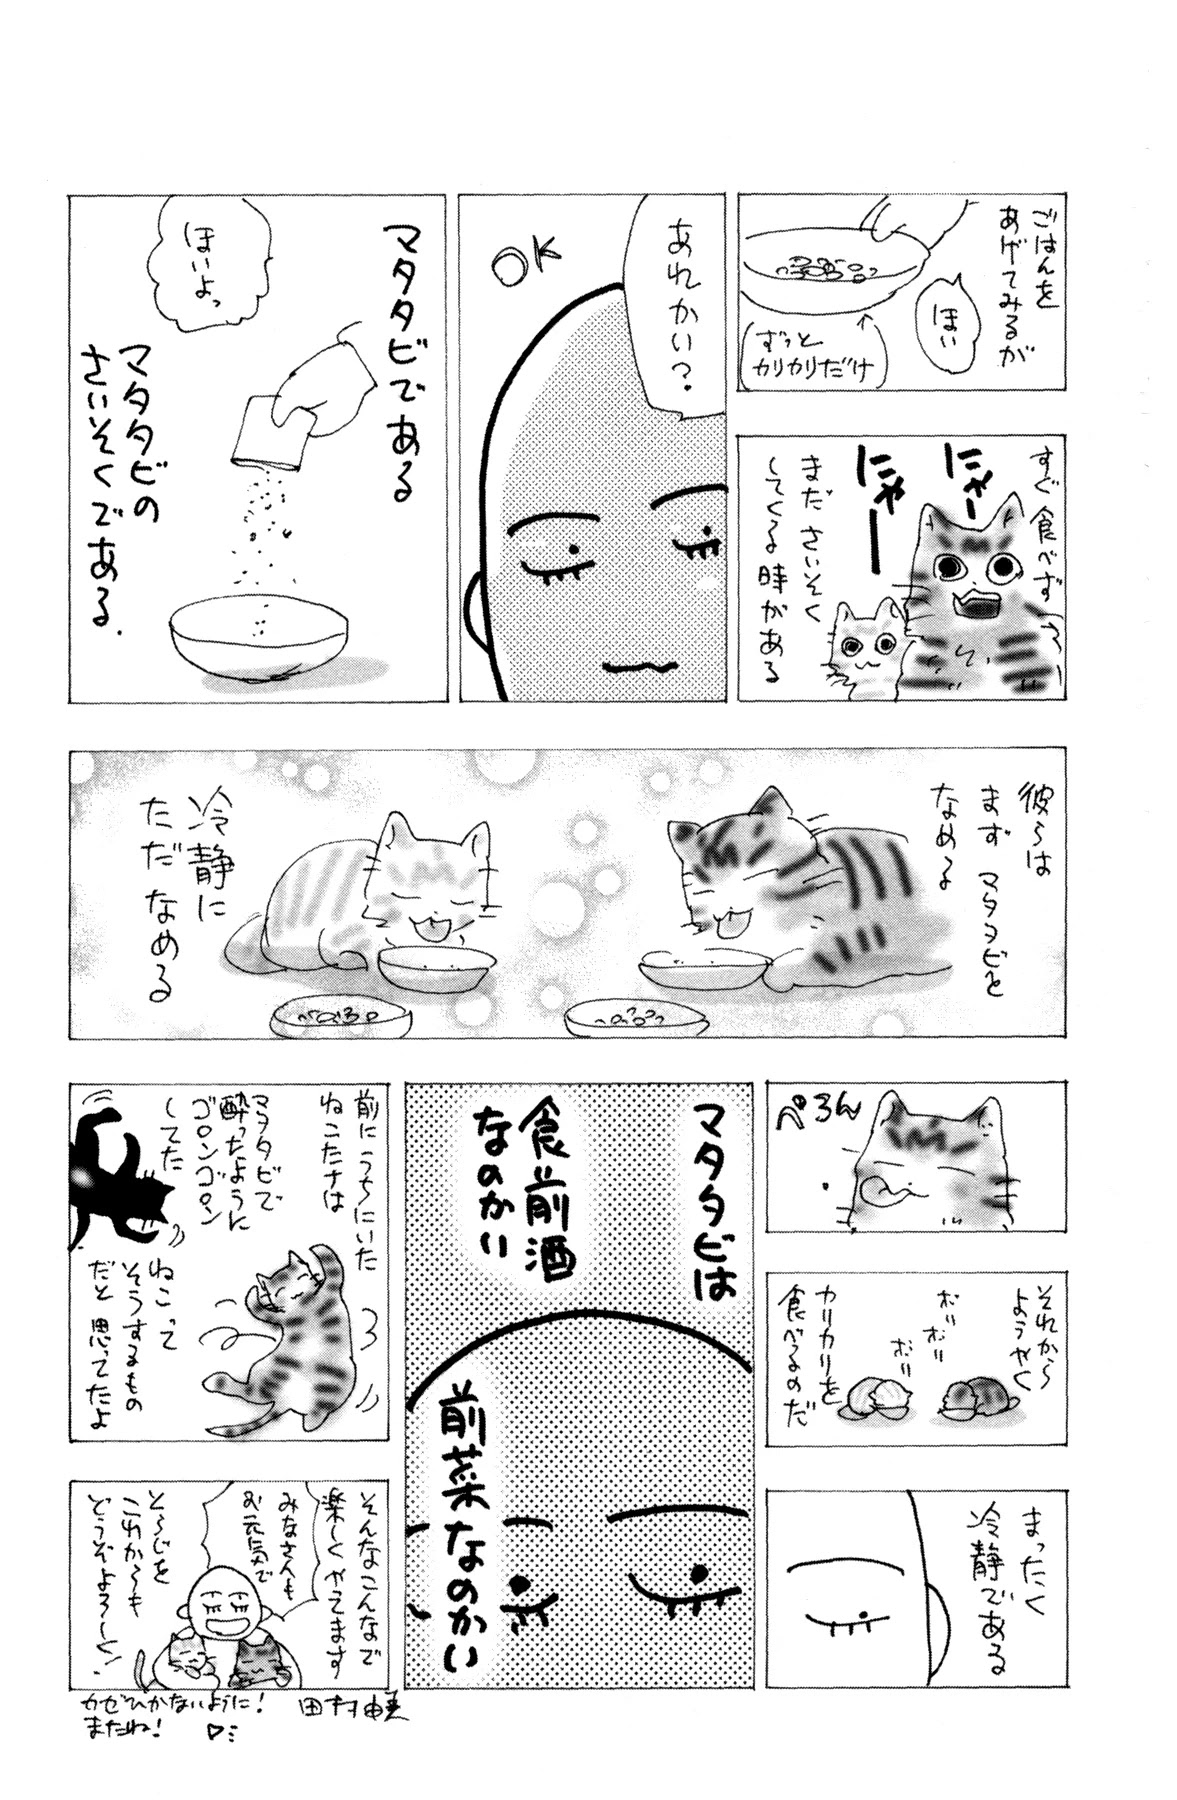 ごはんを
あげてみるが
ほい
ずっと
カリカリだけ
すぐ食べず
にゃー
にゃー
まださいそく
してくる時がある
あれかい?
OK
マタタビである
ほいよっ
マタタビの
さいそくである.
彼らは
まず マタタビを
なめる
冷静に
ただ なめる
ぺろん
それから
ようやく
ポリ
ポリ
ポリ
カリカリを
食べるのだ
まったく
冷静である
マタタビは
食前酒
なのかい
前菜なのかい
前にうちにいた
ねこたちは
マタタビで
酔ったように
ゴロンゴロン
してた
ねこって
そうするもの
だと思ってたよ
そんなこんなで
楽しくやてます
みなさんも
お元気で
そいじを
これからも
どうぞよろしく!
カゼひかないように!
またね!
田村由美